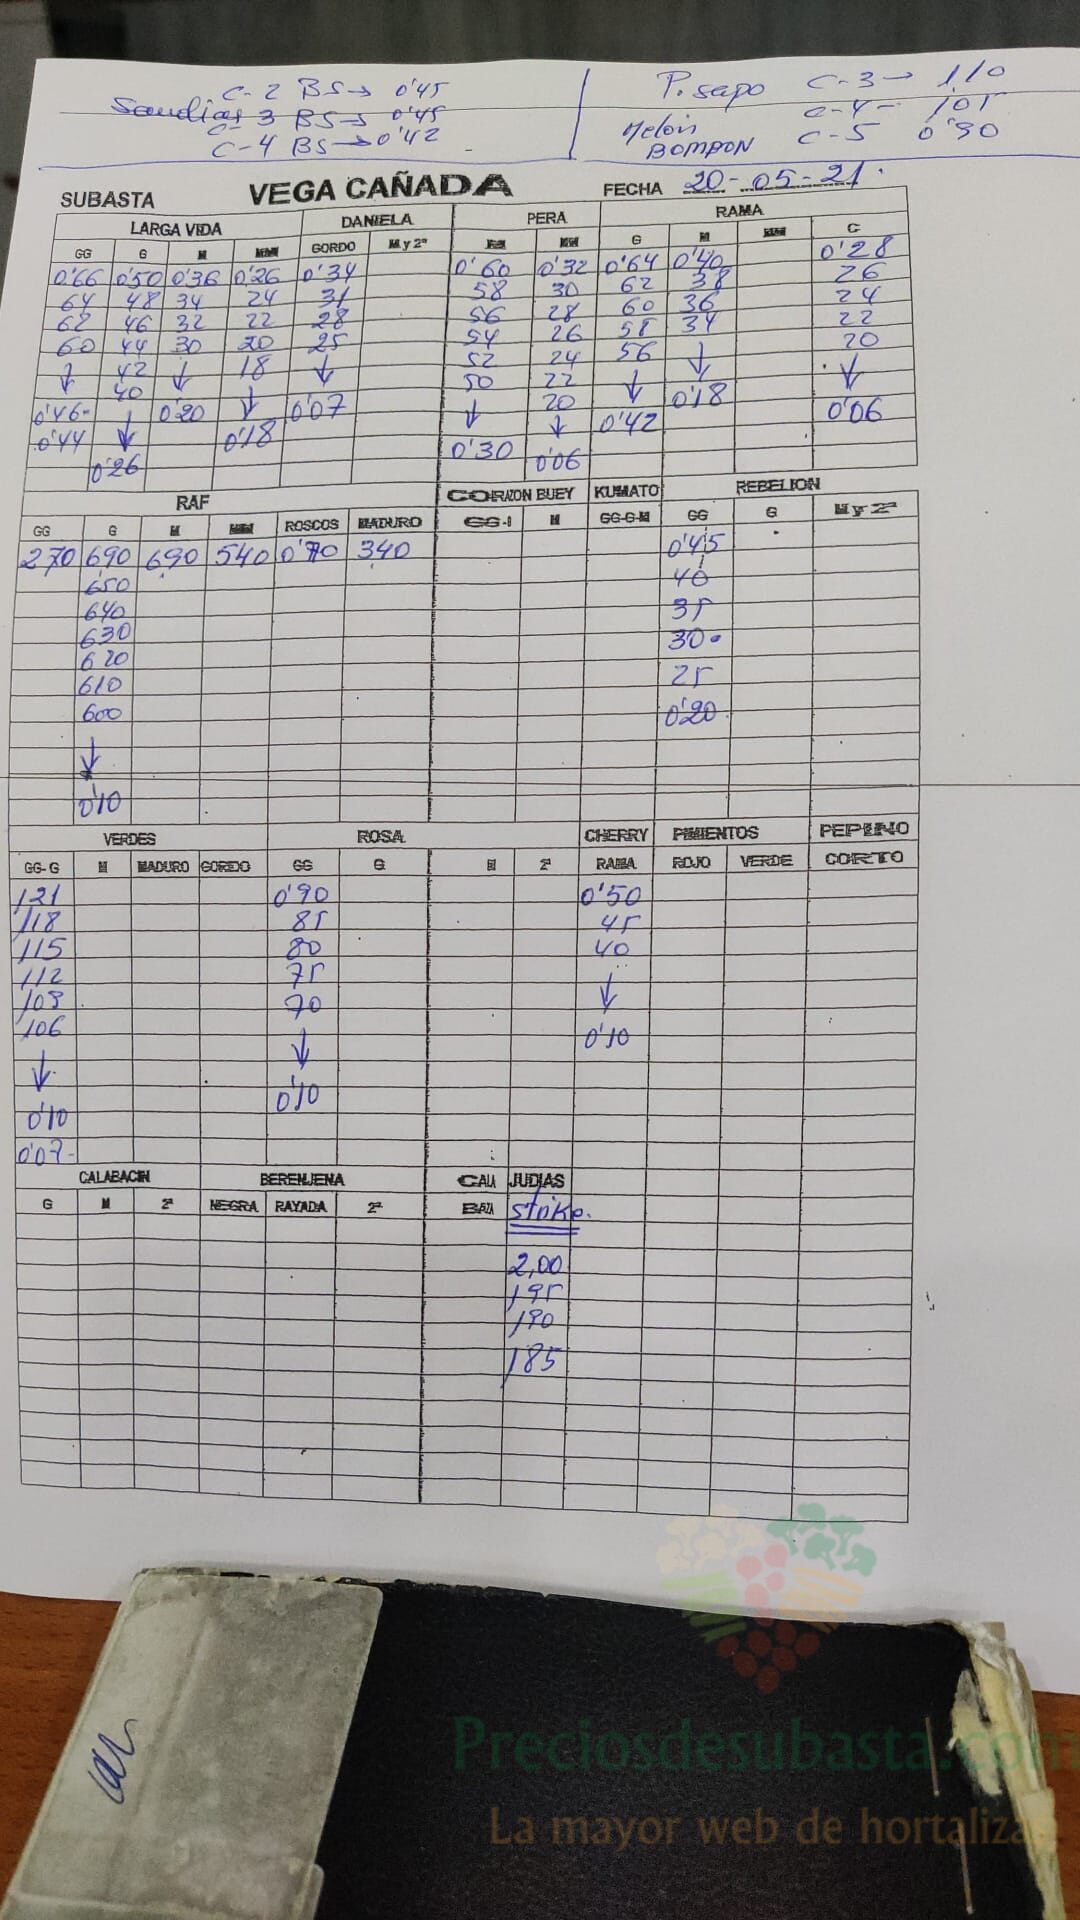 C-2 BS→ 0'45
Sandias 3 BS→ 0'45
C-4 BS→0'42
P. sapo C-3→ 110
C-4- 105
Melón C-5 0'90
BOMBON
SUBASTA VEGA CAÑADA FECHA 20-05-21.
LARGA VIDA DANIELA PERA RAMA
GG G M MM GORDO M y 2ª M MM G M MM C
0'66 0'50 0'36 0'26 0'34 0'60 0'32 0'64 0'40 0'28
64 48 34 24 31 58 30 62 38 26
62 46 32 22 28 56 28 60 36 24
60 44 30 20 25 54 26 58 34 22
↓ 42 ↓ 18 ↓ 52 24 56 ↓ 20
40 ↓ 50 22 ↓ ↓
0'46- ↓ 0'20 0'07 ↓ 20 0'42 0'18 0'06
0'44 0'18 ↓
0'26 0'30 0'06
RAF CORAZON BUEY KUMATO REBELION
GG G M MM ROSCOS MADURO GG-I M GG-G-M GG G M y 2ª
270 690 690 540 0'70 340 0'45
650 40
640 35
630 30
620 25
610 0'20
600
↓
0'10
VERDES ROSA CHERRY PIMIENTOS PEPINO
GG-G M MADURO GORDO GG G M 2ª RAMA ROJO VERDE CORTO
121 0'90 0'50
118 85 45
115 80 40
112 75 ↓
109 70 0'10
106 ↓
↓ 0'10
0'10
0'07-
CALABACIN BERENJENA CALA JUDIAS
G M 2ª NEGRA RAYADA 2ª BAZA strike.
2,00
195
190
185
Preciosdesubasta.com
La mayor web de hortalizas